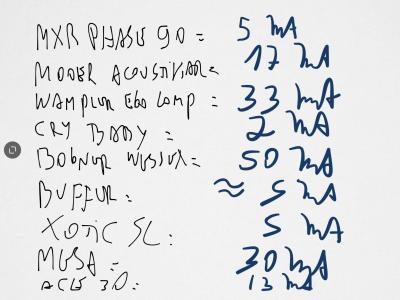 MXR PHASE 90 = 5 mA
MOOER ACOUSTIKAR = 17 mA
WAMPLER EGO COMP = 33 mA
CRY BABY = 2 mA
BOGNER WESSEX = 50 mA
BUFFER: ≈ 5 mA
XOTIC SL: 5 mA
MESA = 30 mA
ACE 30: 13 mA